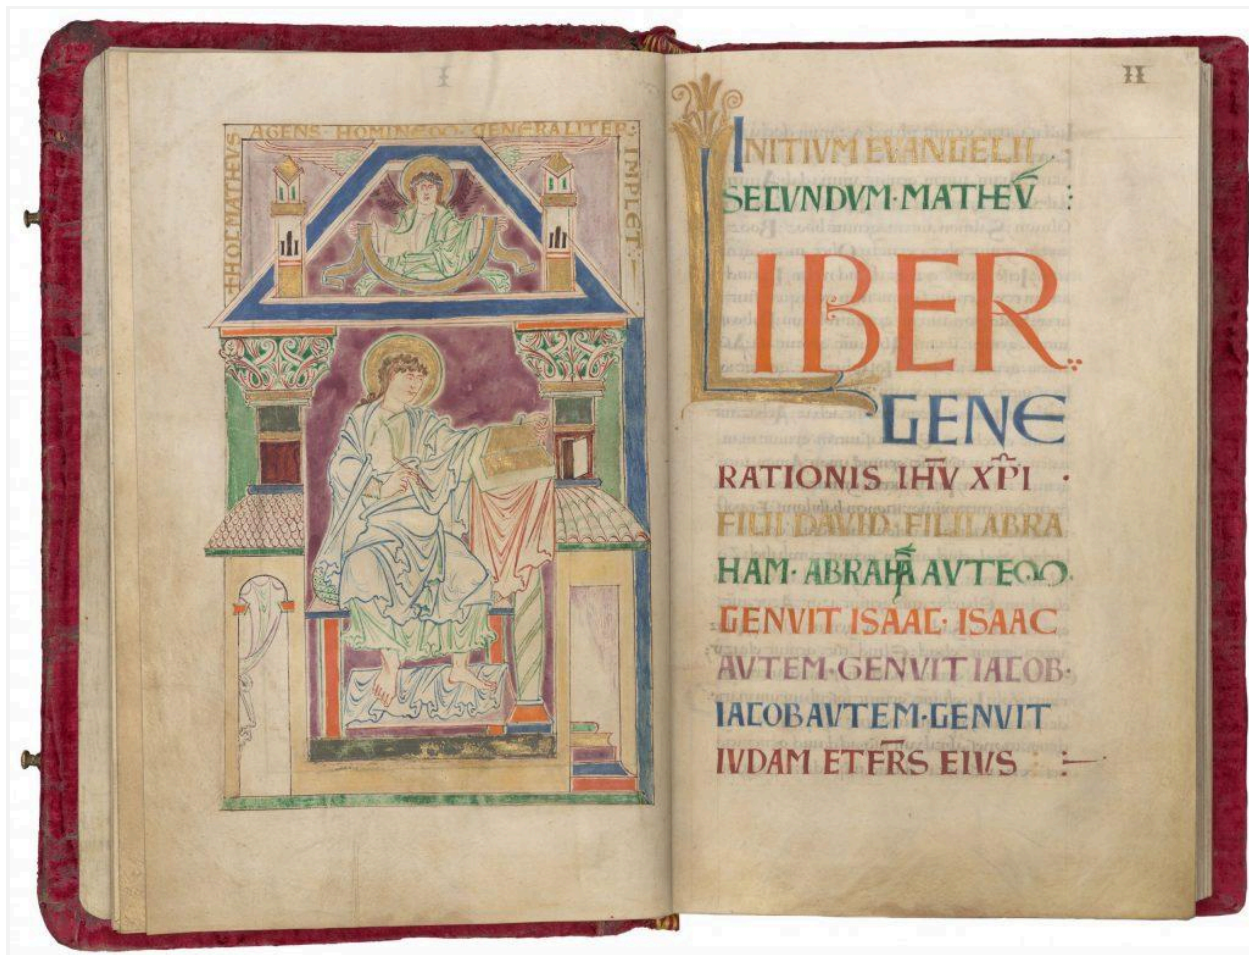 I
+ HOC MATHEVS
AGENS · HOMINEM · GENERALITER ·
IMPLET : –
II
INITIVM EVANGELII
SECVNDVM · MATHEV̄ :
LIBER
GENE
RATIONIS IHV̄ XP̄I ·
FILII DAVID · FILII ABRA
HAM · ABRAHĀ AVTEM
GENVIT ISAAC · ISAAC
AVTEM · GENVIT IACOB ·
IACOB AVTEM · GENVIT
IVDAM ET FR̄S EIVS :